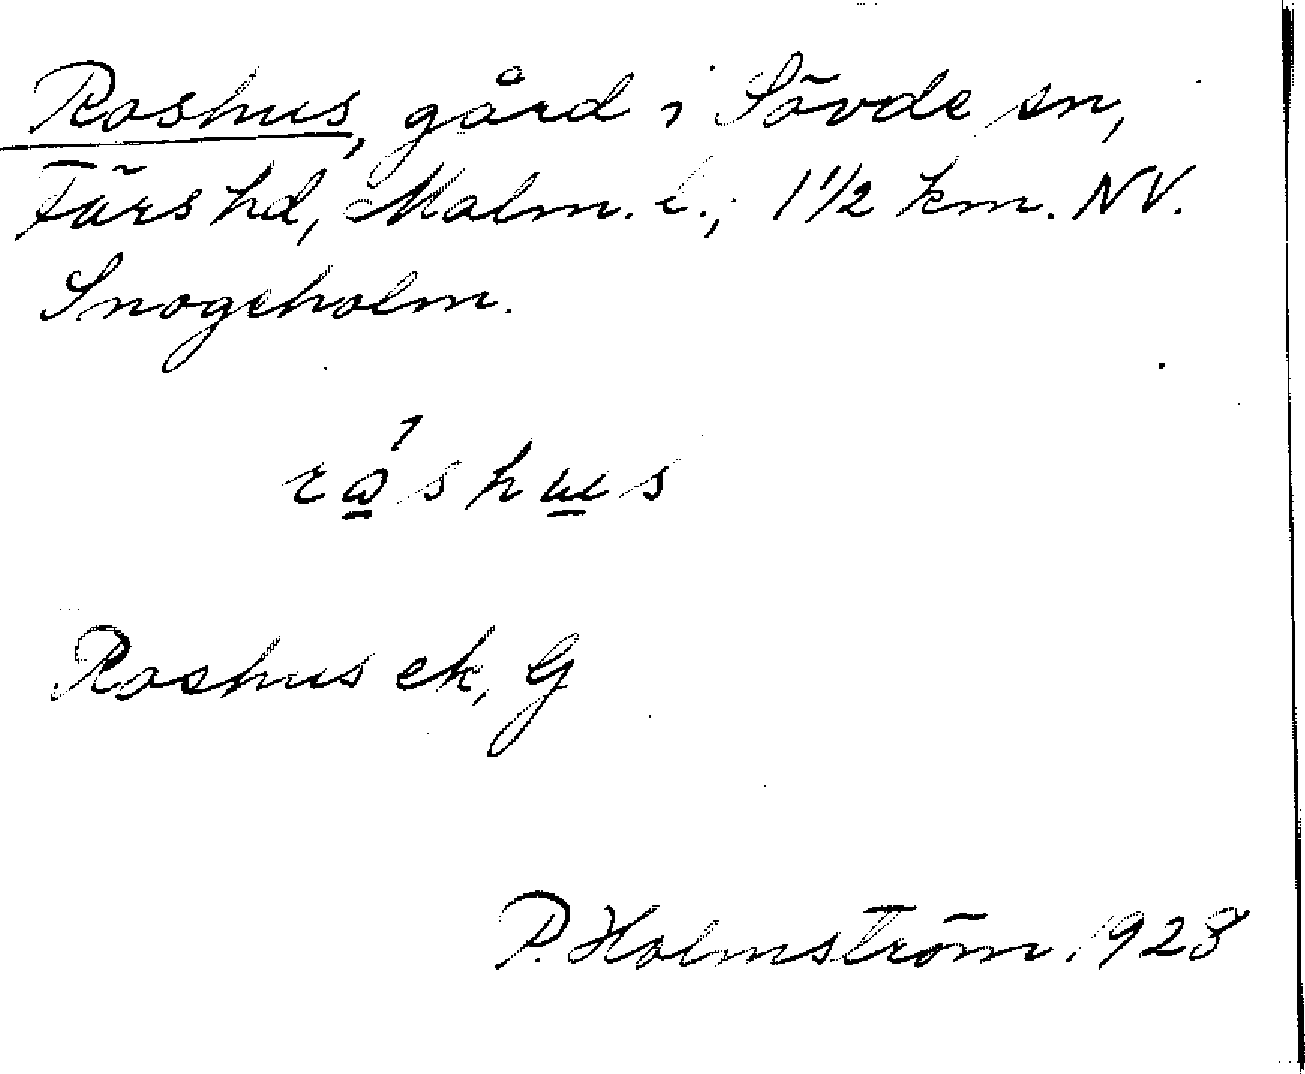 Roshus, gård i Sövde sn,
Färs hd, Malm. l.; 1 1/2 km. NV.
Snogeholm.
roshus
Roshus ek, G
P. Holmström 1928